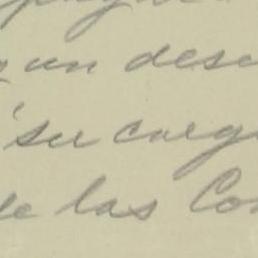 y un dese
su carg
de las Co